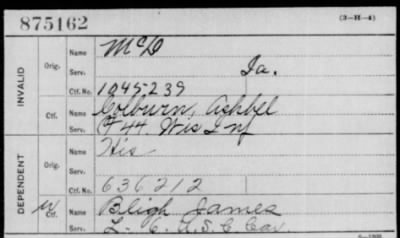 875162 (3-H-4)
INVALID
Orig. Name McD
Serv. Ia.
Ctf. No. 1045239
Ctf. Name Colburn, Ashbel
Serv. F 44. Wis Inf
DEPENDENT
Orig. Name Wis
Serv.
Ctf. No. 636212
W Ctf. Name Bligh James
Serv. L. 6. U.S.C. Cav